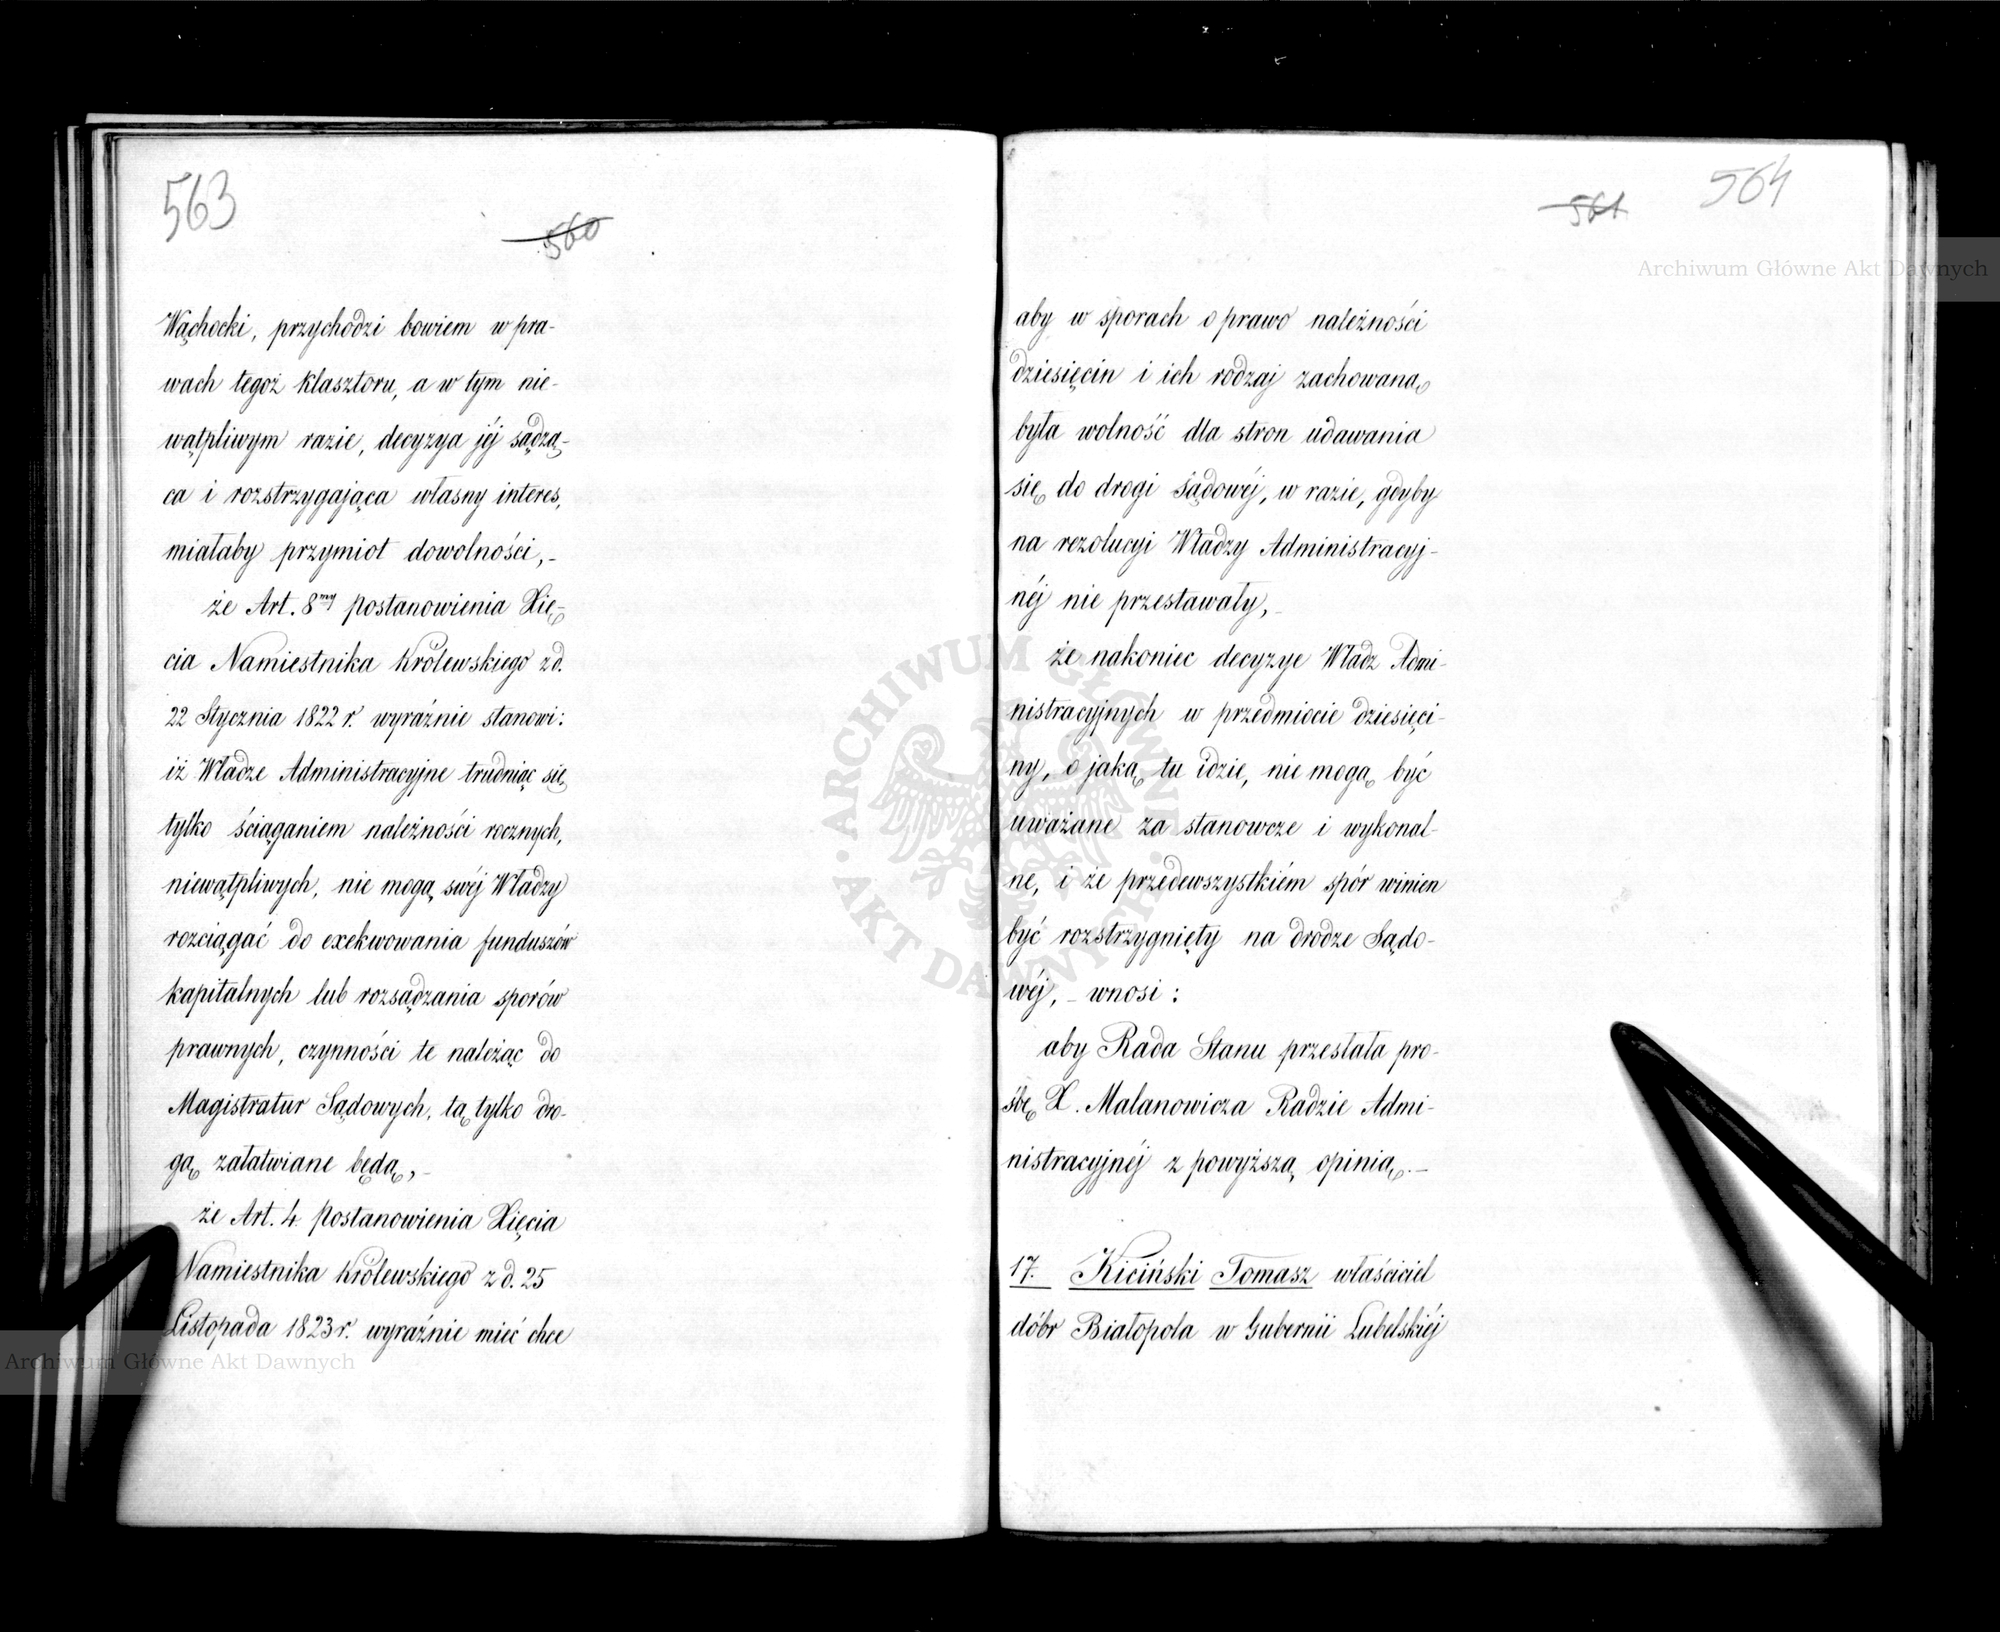 563
560
Wąchocki, przychodzi bowiem w pra-
wach tegoż klasztoru, a w tym nie-
wątpliwym razie, decyzya jéj sądzą-
ca i rozstrzygająca własny interes,
miałaby przymiot dowolności,-
że Art. 8my postanowienia Xię-
cia Namiestnika Królewskiego z d.
22 Stycznia 1822 r. wyraźnie stanowi:
iż Władze Administracyjne trudniąc się
tylko ściąganiem należności rocznych,
niewątpliwych, nie mogą swéj Władzy
rozciągać do exekwowania funduszów
kapitalnych lub rozsądzania sporów
prawnych, czynności te należąc do
Magistratur Sądowych, tą tylko dro-
gą załatwiane będą,-
że Art. 4. Postanowienia Xięcia
Namiestnika Królewskiego z d. 25
Listopada 1823 r. wyraźnie mieć chce
564
561
aby w sporach o prawo należności
dziesięcin i ich rodzaj zachowaną
była wolność dla stron udawania
się do drogi Sądowéj, w razie, gdyby
na rezolucyi Władzy Administracyj-
néj nie przestawały,-
że nakoniec decyzye Władz Admi-
nistracyjnych w przedmiocie dziesięci-
ny, o jaką tu idzie, nie mogą być
uważane za stanowcze i wykonal-
ne, i że przedewszystkiém spór winien
być rozstrzygnięty na drodze Sądo-
wéj,- wnosi:
aby Rada Stanu przesłała pro-
śbę X. Malanowicza Radzie Admi-
nistracyjnéj z powyższą opinią.-
17. Kiciński Tomasz właściciel
dóbr Białopola w Gubernii Lubelskiéj
Archiwum Główne Akt Dawnych
Archiwum Główne Akt Dawnych
ARCHIWUM GŁÓWNE AKT DAWNYCH